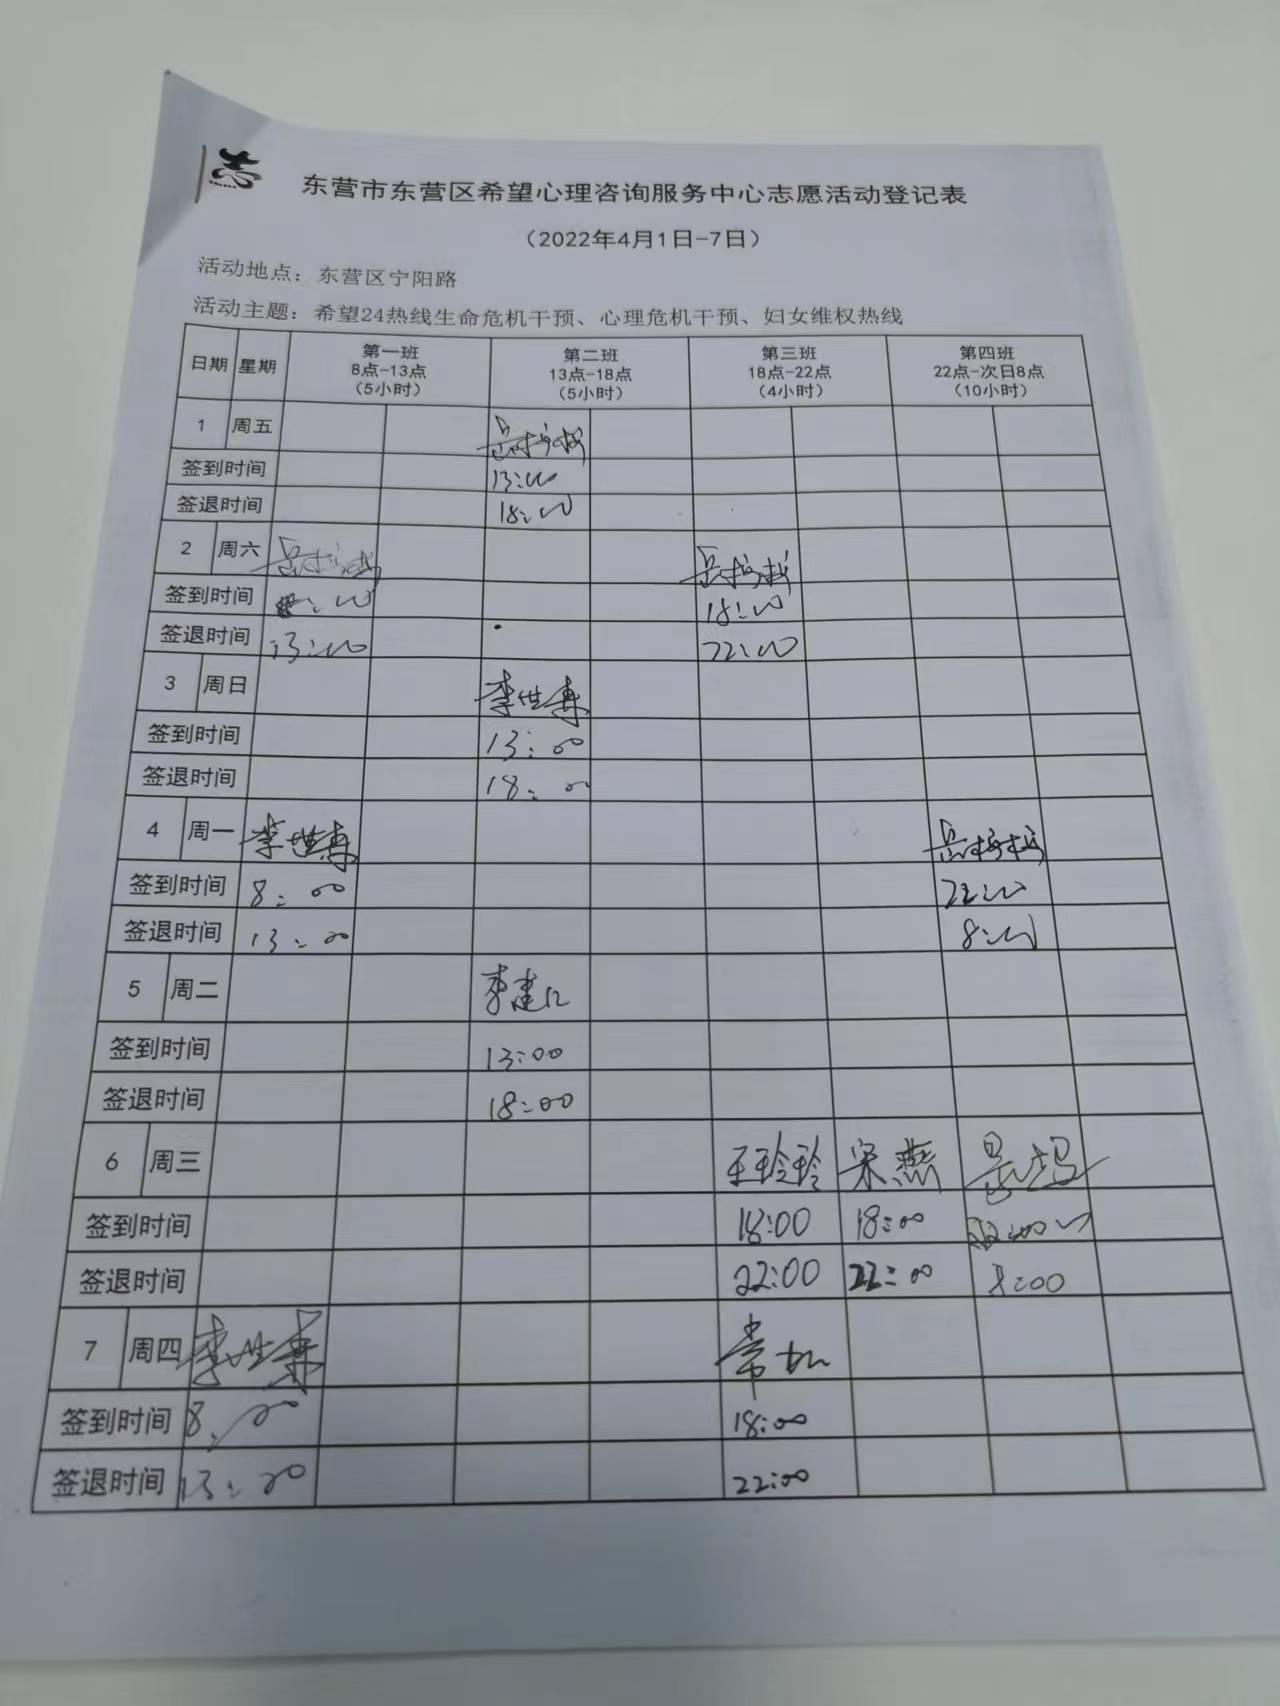 志
东营市东营区希望心理咨询服务中心志愿活动登记表
（2022年4月1日-7日）
活动地点：东营区宁阳路
活动主题：希望24热线生命危机干预、心理危机干预、妇女维权热线
日期 星期 第一班 第二班 第三班 第四班
8点-13点 13点-18点 18点-22点 22点-次日8点
（5小时） （5小时） （4小时） （10小时）
1 周五
签到时间 13:00
签退时间 18:00
2 周六
签到时间 18:00
签退时间 13:00 22:00
3 周日
签到时间 13:00
签退时间 18:00
4 周一
签到时间 8:00 22:00
签退时间 13:00 8:00
5 周二
签到时间 13:00
签退时间 18:00
6 周三 王玲玲 宋燕
签到时间 18:00 18:00
签退时间 22:00 22:00 8:00
7 周四
签到时间 8:00 18:00
签退时间 13:00 22:00